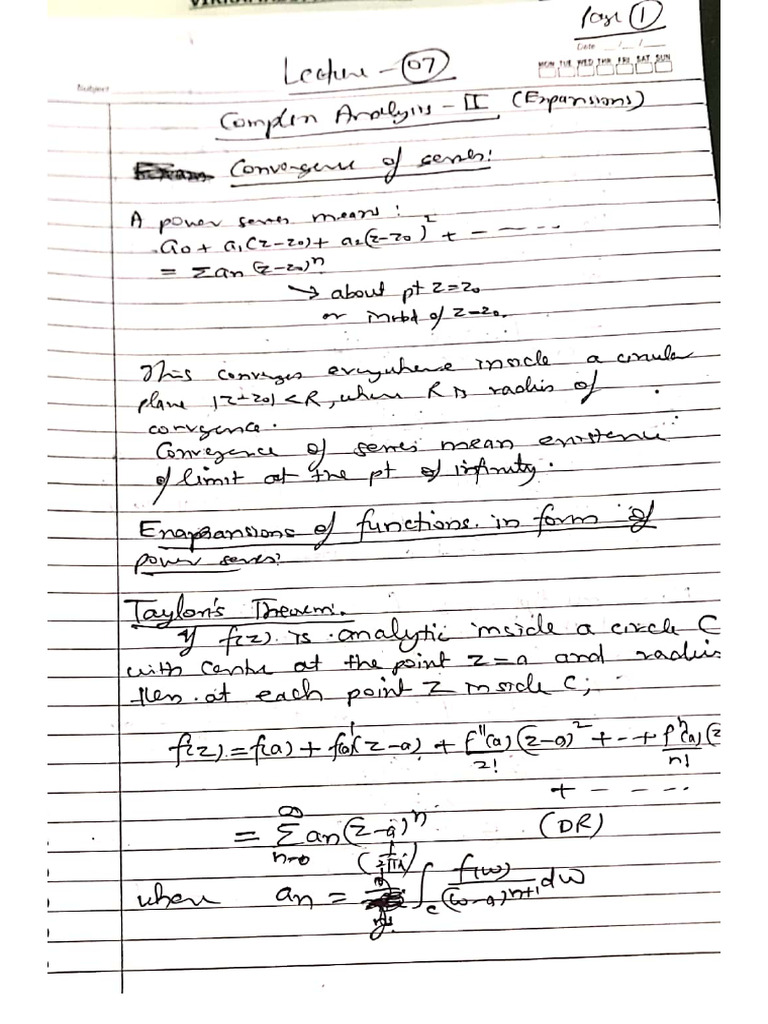 Page 1
Date __/__/__
MON TUE WED THR FRI SAT SUN
Subject
Lecture - 07
Complex Analysis - II (Expansions)
Convergence of series:
A power series means:
a0 + a1(z-z0) + a2(z-z0)^2 + - - - - -
= Σ an (z-z0)^n
→ about pt z=z0
or in nbd of z=z0.
This converges everywhere inside a circular
plane |z-z0| < R, where R is radius of
convgence.
Convegence of series mean existence
of limit at the pt of infinity.
Enapansions of functions in form of
power series:
Taylor's Theorem.
If f(z) is analytic inside a circle C
with centre at the point z=a and radius
then at each point z inside C;
f(z) = f(a) + f'(a)(z-a) + f''(a)/2! (z-a)^2 + - - + f^n(a)/n! (z
+ - - - - -
= Σ_{n=0}^{∞} an(z-a)^n (OR)
where an = (1/2πi) ∫_c f(w)/(w-a)^{n+1} dw